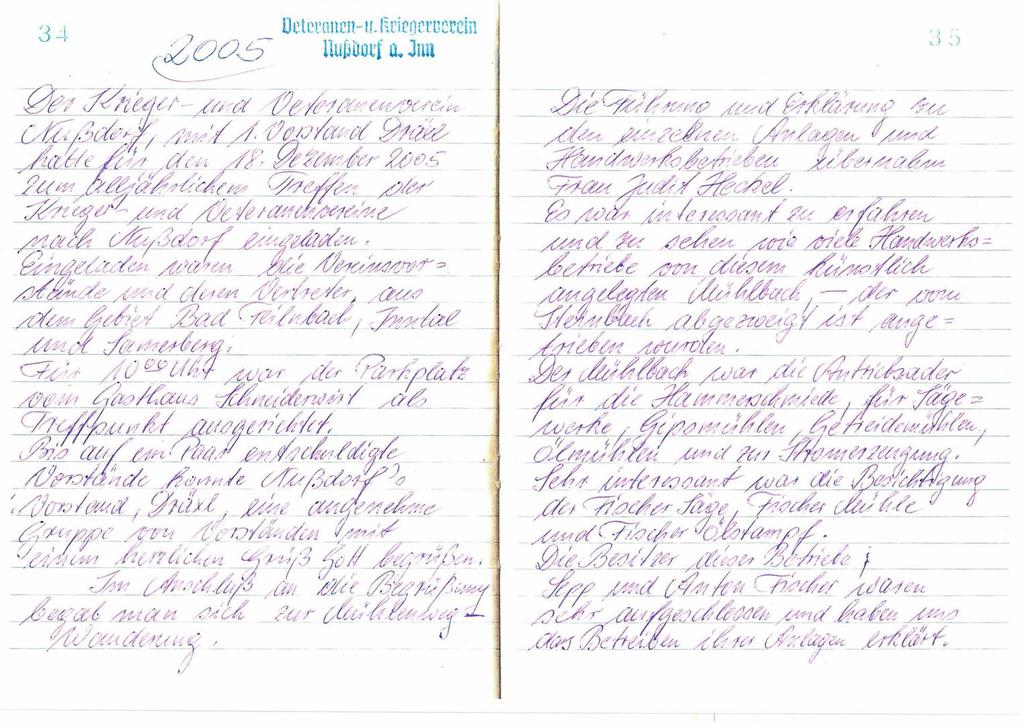 34
2005
Veteranen-u. Kriegerverein
Nußdorf a. Inn
Der Krieger- und Veteranenverein
Nußdorf, mit 1. Vorstand Dräxl
hatte für den 18. Dezember 2005
zum alljährlichem Treffen der
Krieger- und Veteranenvereine
nach Nußdorf eingeladen.
Eingeladen waren die Vereinsvor=
stände und deren Vertreter, aus
dem Gebiet Bad Feilnbach, Inntal
und Samerberg.
Für 10⁰⁰ Uhr war der Parkplatz
vom Gasthaus Schneiderwirt als
Treffpunkt ausgerichtet.
Bis auf ein Paar entschuldigte
Vorstände konnte Nußdorf's
Vorstand, Dräxl, eine angenehme
Gruppe von Vorständen mit
einem herzlichen Grüß Gott begrüßen.
Im Anschluß an die Begrüßung
begab man sich zur Mühlenweg-
Wanderung.
35
Die Führung und Erklärung zu
den einzelnen Anlagen und
Handwerksbetrieben übernahm
Frau Judit Heckel.
Es war interessant zu erfahren
und zu sehen wie viele Handwerks=
betriebe von diesem künstlich
angelegten Mühlbach, – der vom
Steinbach abgezweigt ist ange=
trieben wurden.
Der Mühlbach war die Antriebsader
für die Hammerschmiede, für Säge=
werke, Gipsmühlen, Getreidemühlen,
Ölmühlen und zur Stromerzeugung.
Sehr interessant war die Besichtigung
der Fischer Säge, Fischer Mühle
und Fischer Ölstampf.
Die Besitzer dieser Betriebe;
Sepp und Anton Fischer waren
sehr aufgeschlossen und haben uns
das Betreiben ihrer Anlagen erklärt.